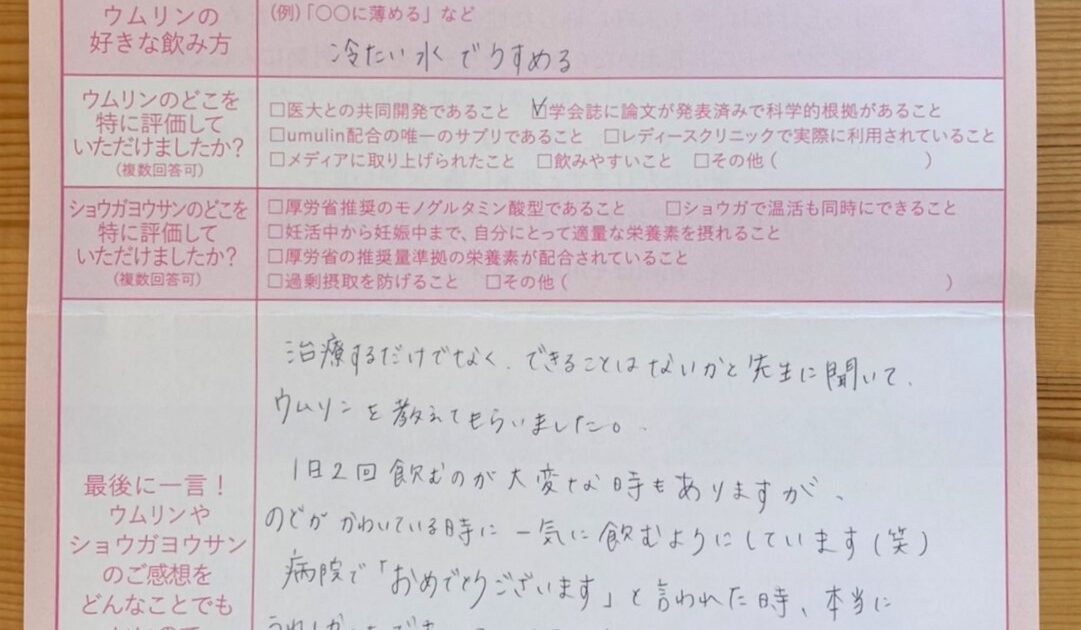 ウムリンの
好きな飲み方
(例)「〇〇に薄める」など
冷たい水でうすめる
ウムリンのどこを
特に評価して
いただけましたか?
(複数回答可)
□医大との共同開発であること ☑学会誌に論文が発表済みで科学的根拠があること
□umulin配合の唯一のサプリであること □レディースクリニックで実際に利用されていること
□メディアに取り上げられたこと □飲みやすいこと □その他( )
ショウガヨウサンのどこを
特に評価して
いただけましたか?
(複数回答可)
□厚労省推奨のモノグルタミン酸型であること □ショウガで温活も同時にできること
□妊活中から妊娠中まで、自分にとって適量な栄養素を摂れること
□厚労省の推奨量準拠の栄養素が配合されていること
□過剰摂取を防げること □その他( )
最後に一言!
ウムリンや
ショウガヨウサン
のご感想を
どんなことでも
治療するだけでなく、できることはないかと先生に聞いて、
ウムリンを教えてもらいました。
1日2回飲むのが大変な時もありますが、
のどがかわいている時に一気に飲むようにしています(笑)
病院で「おめでとうございます」と言われた時、本当に